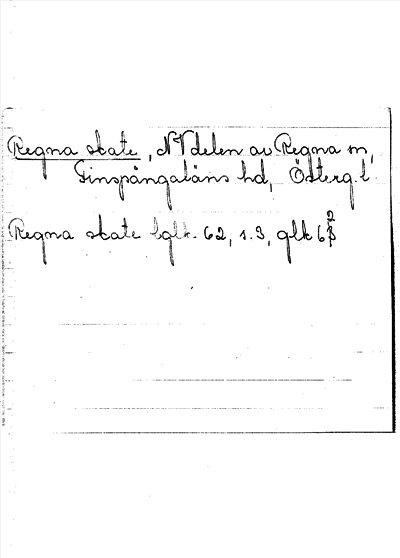 Regna skate, NV delen av Regna sn,
Finspångaläns hd, Österg.l.
Regna skate lglk. 62, s.3, glk 62